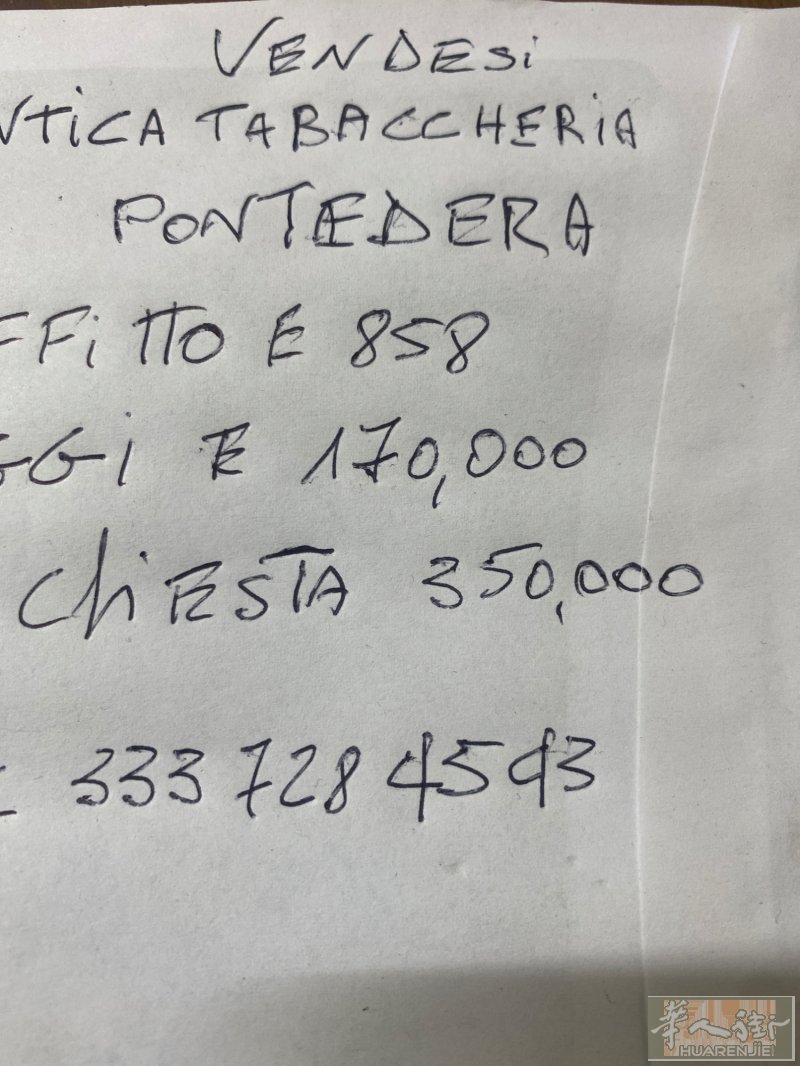 VENDESi
NTiCA TABACCHERiA
PONTEDERA
FFiTTO E 858
GGi E 170,000
ChiESTA 350,000
333 728 4543
華人街
HUARENJIE